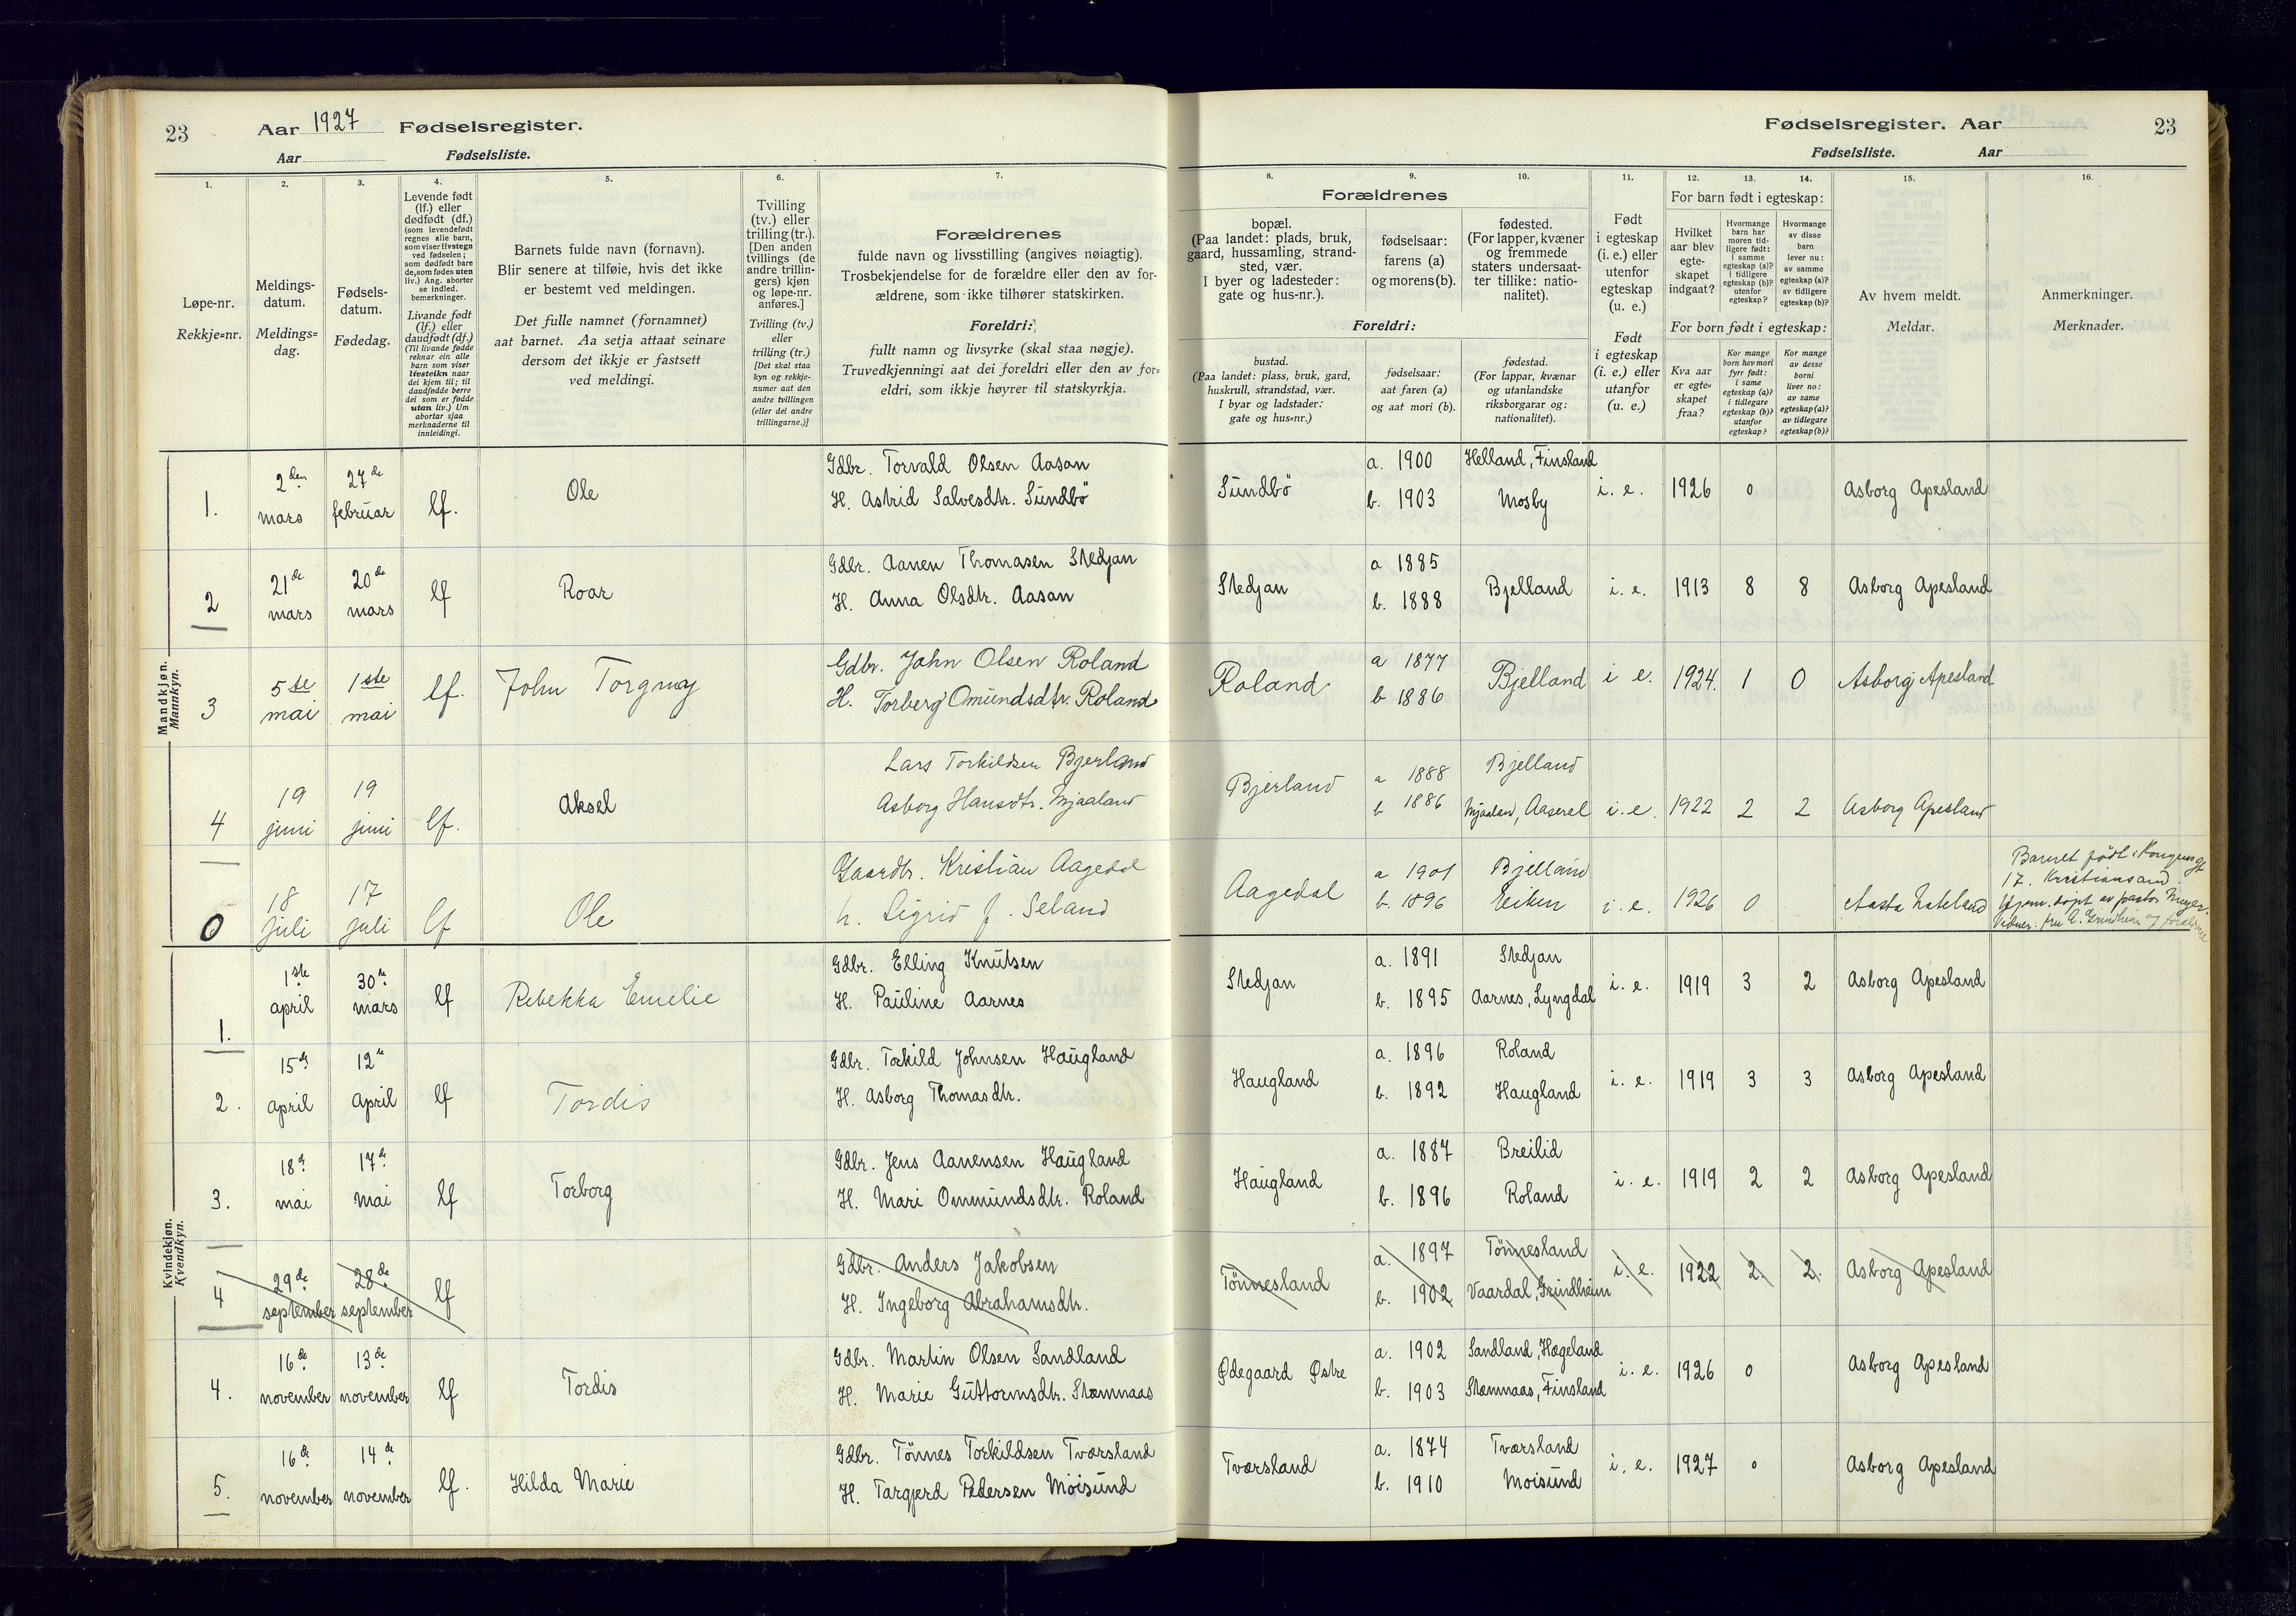 23 Aar 1927 Fødselsregister.
Aar Fødselsliste.
Fødselsregister. Aar 23
Fødselsliste. Aar
1. 2. 3. 4. 5. 6. 7. 8. 9. 10. 11. 12. 13. 14. 15. 16.
Løpe-nr.
Rekkje=nr.
Meldings-
datum.
Meldings=
dag.
Fødsels-
datum.
Fødedag.
Levende født
(lf.) eller
dødfødt (df.)
(som levendefødt
regnes alle barn,
som viser livstegn
ved fødselen;
som dødfødt bare
de, som fødes uten
liv.) Ang. aborter
se indled.
bemerkninger.
Livande født
(lf.) eller
daudfødt (df.)
(Til livande fødde
reknar ein alle
barn som viser
livsteikn naar
dei kjem til; til
daudfødde berre
dei som er fødde
utan liv.) Um
abortar sjaa
merknaderne til
innleidingi.
Barnets fulde navn (fornavn).
Blir senere at tilføie, hvis det ikke
er bestemt ved meldingen.
Det fulle namnet (fornamnet)
aat barnet. Aa setja attaat seinare
dersom det ikkje er fastsett
ved meldingi.
Tvilling
(tv.) eller
trilling (tr.).
[Den anden
tvillings (de
andre trillin-
gers) kjøn
og løpe-nr.
anføres.]
Tvilling (tv.)
eller
trilling (tr.)
[Det skal staa
kyn og rekkje-
numer aat den
andre tvillingen
(eller dei andre
trillingarne.)]
Forældrenes
fulde navn og livsstilling (angives nøiagtig).
Trosbekjendelse for de forældre eller den av for-
ældrene, som ikke tilhører statskirken.
Foreldri:
fullt namn og livsyrke (skal staa nøgje).
Truvedkjenningi aat dei foreldri eller den av for=
eldri, som ikkje høyrer til statskyrkja.
Forældrenes
bopæl.
(Paa landet: plads, bruk,
gaard, hussamling, strand-
sted, vær.
I byer og ladesteder:
gate og hus-nr.).
fødselsaar:
farens (a)
og morens (b).
fødested.
(For lapper, kvæner
og fremmede
staters undersaat-
ter tillike: natio-
nalitet).
Foreldri:
bustad.
(Paa landet: plass, bruk, gard,
huskrull, strandstad, vær.
I byar og ladstader:
gate og hus=nr.)
fødselsaar:
aat faren (a)
og aat mori (b).
fødestad.
(For lappar, kvænar
og utanlandske
riksborgarar og:
nationalitet).
Født
i egteskap
(i. e.) eller
utenfor
egteskap
(u. e.)
Født
i egteskap
(i. e.) eller
utanfor
(u. e.)
For barn født i egteskap:
Hvilket
aar blev
egte-
skapet
indgaat?
Hvormange
barn har
moren tid-
ligere født:
i samme
egteskap (a)?
i tidligere
egteskap (b)?
utenfor
egteskap?
Hvormange
av disse
barn
lever nu:
av samme
egteskap (a)?
av tidligere
egteskap (b)?
For born født i egteskap:
Kva aar
er egte=
skapet
fraa?
Kor mange
born hev mori
fyrr født:
i same
egteskap (a)?
i tidlegare
egteskap (b)?
utanfor
egteskap?
Kor mange
av desse
borni
liver no:
av same
egteskap (a)?
av tidlegare
egteskap (b)?
Av hvem meldt.
Meldar.
Anmerkninger.
Merknader.
Mandkjøn.
Mannkyn.
1. 2den mars 27de februar lf. Ole
Gdbr. Torvald Olsen Aasan
H. Astrid Salvesdtr. Sundbö
Sundbö a. 1900 Helland, Finsland
b. 1903 Mosby i. e. 1926 0 Asborg Apesland
2 21de mars 20de mars lf Roar
Gdbr. Aanen Thomasen Stedjan
H. Anna Olsdtr. Aasan
Stedjan a 1885
b. 1888 Bjelland i. e. 1913 8 8 Asborg Apesland
3 5te mai 1ste mai lf. John Torgny
Gdbr. John Olsen Roland
H. Torberg Omundsdtr. Roland
Roland a 1877
b 1886 Bjelland i e. 1924. 1 0 Asborg Apesland
4 19 juni 19 juni lf. Aksel
Lars Torkildsen Bjerland
Asborg Hansdtr. Mjaaland
Bjerland a 1888 Bjelland
b 1886 Mjaaland, Aaseral i. e. 1922 2 2 Asborg Apesland
0 18 juli 17 juli lf Ole
Gaardbr. Kristian Aagedal
h. Sigrid f. Seland
Aagedal a 1901 Bjelland
b. 1896 Eiken i. e. 1926 0 Aasta
Barnet född i Kongensgt
17. Kristiansand.
Hjem. döpt av pastor
Vidner: fru
Kvindekjøn.
Kvendkyn.
1. 1ste april 30te mars lf Rebekka Emelie
Gdbr. Elling Knutsen
H. Pauline Aarnes
Stedjan a. 1891 Stedjan
b. 1895 Aarnes, Lyngdal i. e. 1919 3 2 Asborg Apesland
2. 15de april 12te April lf Tordis
Gdbr. Torkild Johnsen Haugland
H. Asborg Thomasdtr.
Haugland a. 1896 Roland
b. 1892 Haugland i. e. 1919 3 3 Asborg Apesland
3. 18de mai 17de mai lf Torborg
Gdbr. Jens Aanensen Haugland
H. Mari Ommundsdtr. Roland
Haugland a. 1887 Breilid
b. 1896 Roland i. e. 1919 2 2 Asborg Apesland
4 29de september 28de september lf
Gdbr. Anders Jakobsen
H. Ingeborg Abrahamsdtr.
Tönnesland a. 1897 Tönnesland
b. 1902 Vaardal, Grindheim i. e. 1922 2. 2. Asborg Apesland
4. 16de november 13de november lf Tordis
Gdbr. Martin Olsen Sandland
H. Marie Guttormsdtr. Stemnaas
Ødegaard Østre a. 1902 Sandland, Hægeland
b. 1903 Stemnaas, Finsland i. e. 1926 0 Asborg Apesland
5. 16de november 14de november lf. Hilda Marie
Gdbr. Tönnes Torkildsen Tværsland
H. Targjerd Pedersen Möisund
Tværsland a. 1874 Tværsland
b. 1910 Moisund i. e. 1927 0 Asborg Apesland